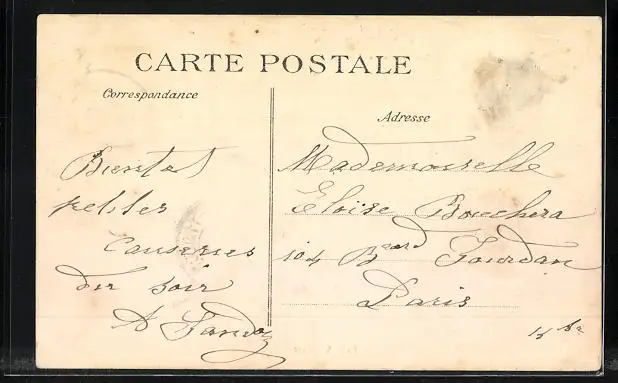 CARTE POSTALE
Correspondance
Adresse
Bientot
petites
causeries
du soir
Mademoiselle
Eloïse Bouchera
104 Bard Jourdan
Paris